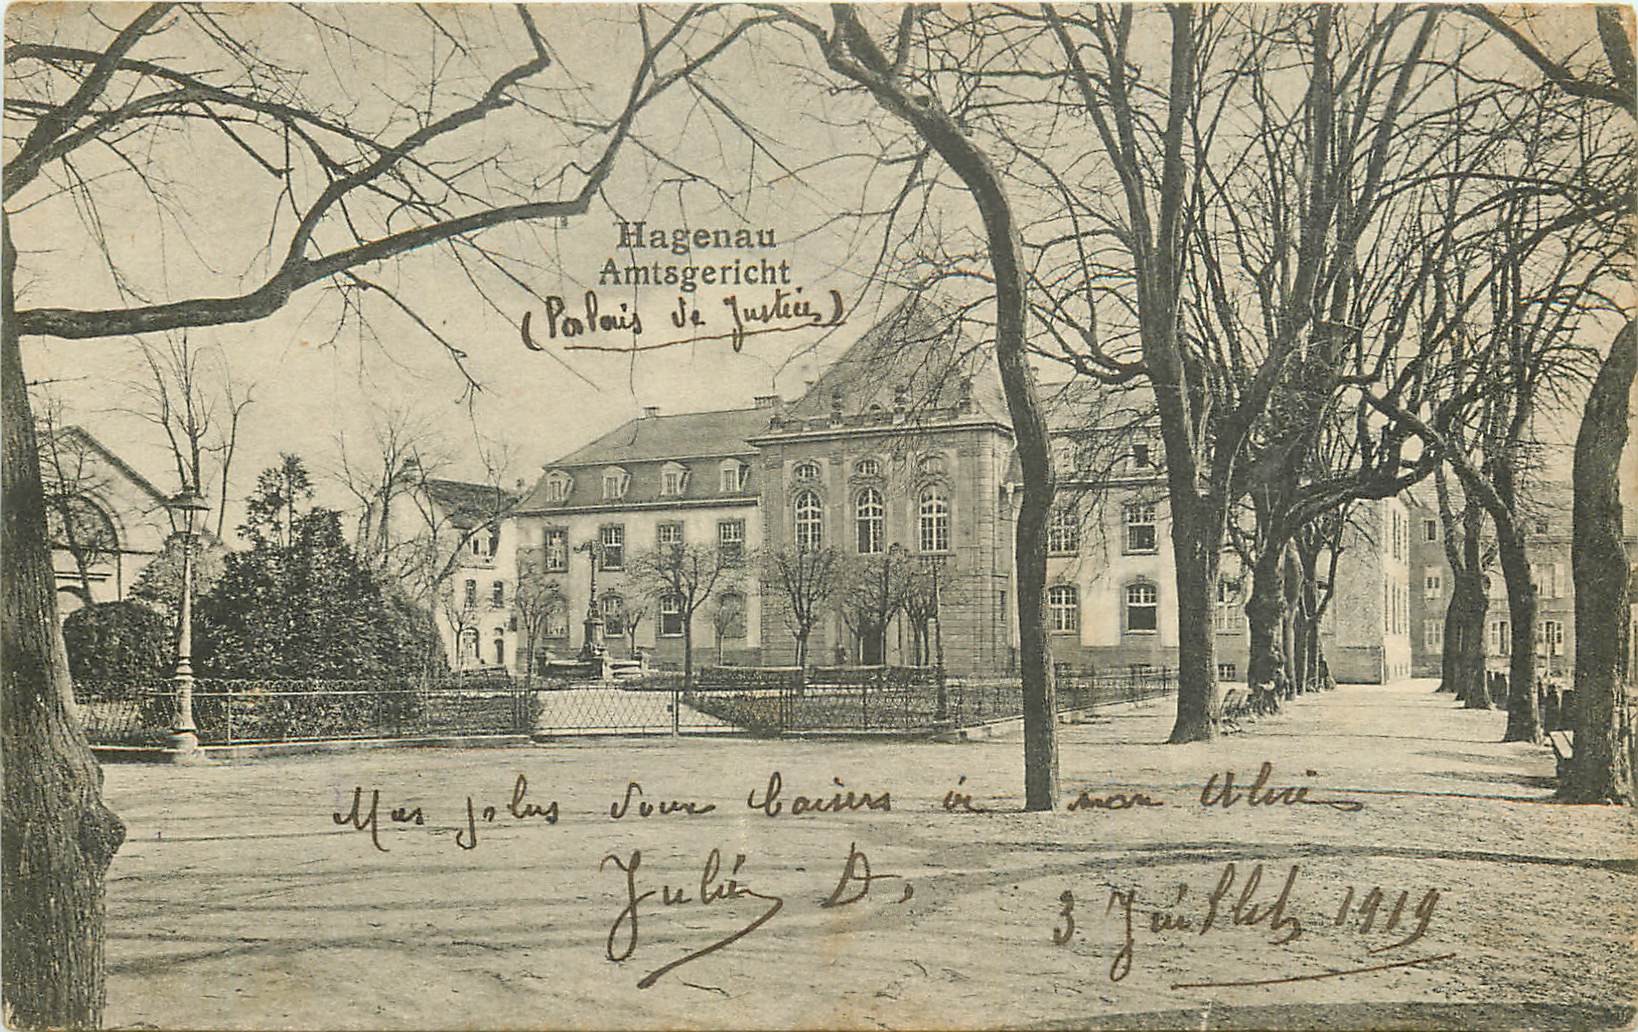 Hagenau
Amtsgericht
(Palais de Justice)
Mes plus doux baisers à mon
Julien D.
3 Juillet 1919